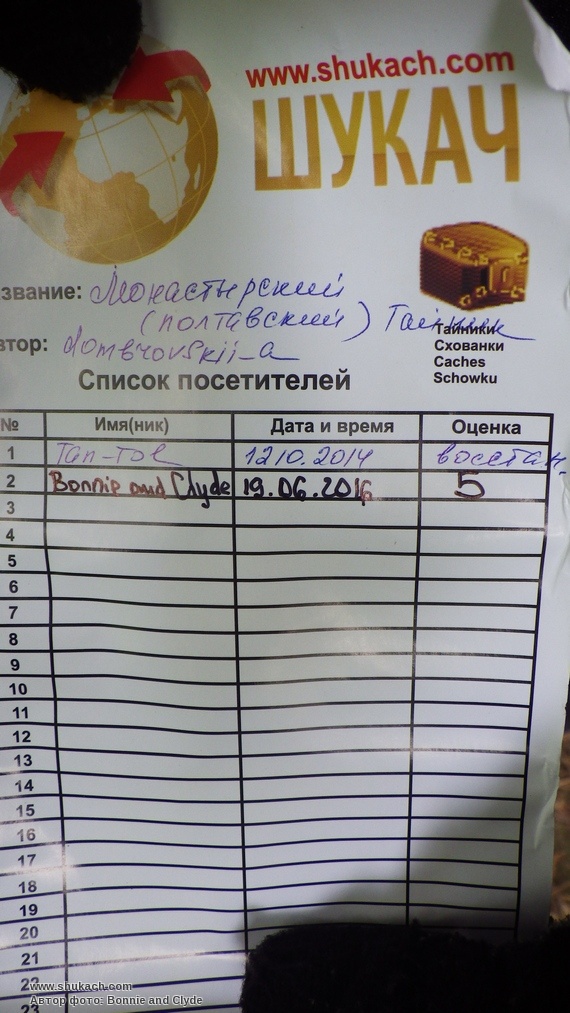 www.shukach.com
ШУКАЧ
звание: Монастырский
(полтавский) Тайник
Тайники
Схованки
Caches
Schowku
втор: dombrovskii_a
Список посетителей
№ Имя(ник) Дата и время Оценка
1 Tan-Tol 12 10.2014 восстан.
2 Bonnie and Clyde 19.06.2016 5
3
4
5
6
7
8
9
10
11
12
13
14
15
16
17
18
19
20
21
22
23
www.shukach.com
Автор фото: Bonnie and Clyde